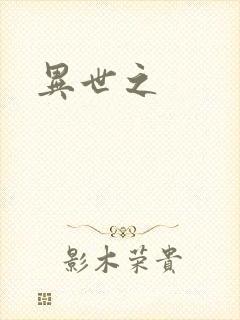 異世之
影木荣貴